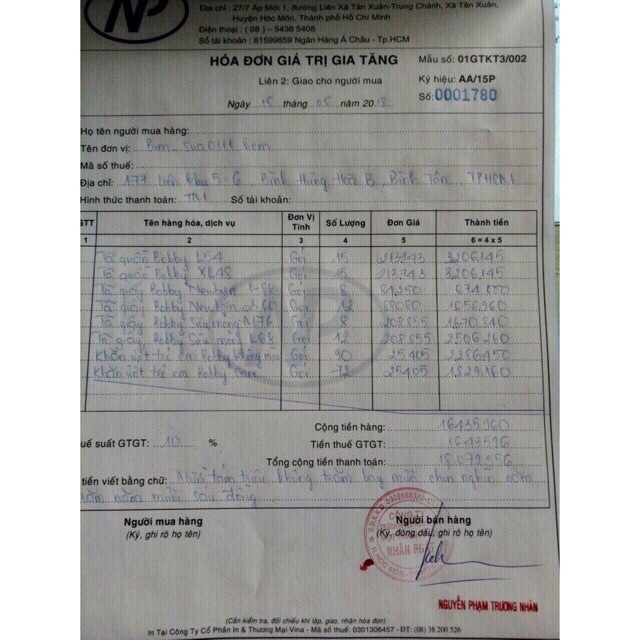 NP
Địa chỉ : 27/7 Ấp Mới 1, đường Liên Xã Tân Xuân-Trung Chánh, Xã Tân Xuân,
Huyện Hóc Môn, Thành phố Hồ Chí Minh
Điện thoại : ( 08 ) – 5438 5408
Số tài khoản : 81599859 Ngân Hàng Á Châu - Tp.HCM
HÓA ĐƠN GIÁ TRỊ GIA TĂNG
Mẫu số: 01GTKT3/002
Liên 2: Giao cho người mua
Ký hiệu: AA/15P
Ngày 15 tháng 05 năm 2018
Số: 0001780
Họ tên người mua hàng:
Tên đơn vị: Bim
Mã số thuế:
Địa chỉ: 177 Liên khu 5-6, Bình Hưng Hòa B, Bình Tân, TPHCM
Hình thức thanh toán: TM Số tài khoản:
STT Tên hàng hóa, dịch vụ Đơn Vị Tính Số Lượng Đơn Giá Thành tiền
1 2 3 4 5 6 = 4 x 5
Tã quần Bobby L54 Gói 15 213743 3206145
Tã quần Bobby XL48 Gói 15 213743 3206145
Tã giấy Bobby Newborn Gói 8 84250 674000
Tã giấy Bobby Newborn Gói 12 88080 1056960
Tã giấy Bobby Siêu mỏng M76 Gói 8 208855 1670840
Tã giấy Bobby Siêu mỏng L68 Gói 12 208855 2506260
Khăn ướt trẻ em Bobby không mùi Gói 90 25405 2286450
Khăn ướt trẻ em Bobby Care Gói 72 25405 1829160
Cộng tiền hàng: 16435960
uế suất GTGT: 10 % Tiền thuế GTGT: 1643596
Tổng cộng tiền thanh toán: 18079556
tiền viết bằng chữ: tám triệu không trăm bảy mươi chín nghìn năm
trăm năm mươi sáu đồng
Người mua hàng
Người bán hàng
(Ký, ghi rõ họ tên)
(Ký, đóng dấu, ghi rõ họ tên)
CÔNG TY
NHÂN PHÁT
NGUYỄN PHẠM TRƯƠNG NHÂN
(Cần kiểm tra, đối chiếu khi lập, giao, nhận hóa đơn)
In Tại Công Ty Cổ Phần In & Thương Mại Vina - Mã số thuế: 0301306457 - ĐT: (08) 38 200 526